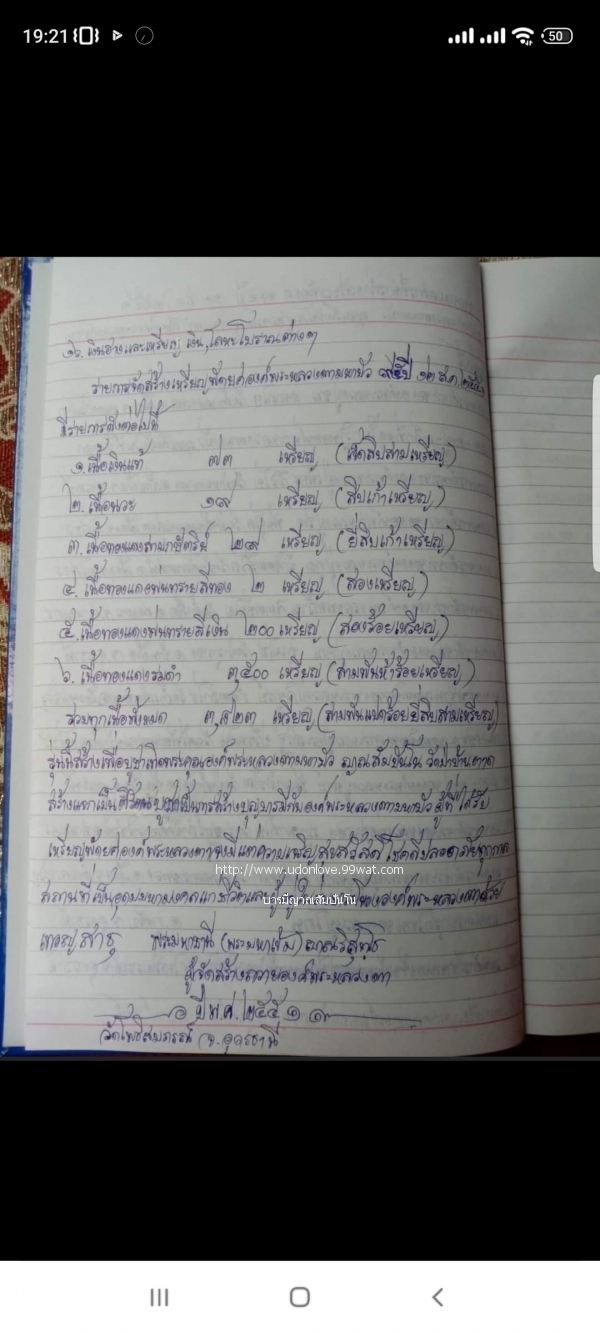 19:21
50
๑๖. เงินฮางและเหรียญ เงิน, โลหะโบราณต่างๆ
รายการจัดสร้างเหรียญพัดยศองค์พระหลวงตามหาบัว ๙๕ปี ๑๒ ส.ค.
มีรายการดังต่อไปนี้
๑. เนื้อเงินแท้ ๗๓ เหรียญ (เจ็ดสิบสามเหรียญ)
๒. เนื้อนวะ ๑๙ เหรียญ (สิบเก้าเหรียญ)
๓. เนื้อทองแดงสามกษัตริย์ ๒๙ เหรียญ (ยี่สิบเก้าเหรียญ)
๔. เนื้อทองแดงพ่นทรายสีทอง ๒ เหรียญ (สองเหรียญ)
๕. เนื้อทองแดงพ่นทรายสีเงิน ๒๐๐ เหรียญ (สองร้อยเหรียญ)
๖. เนื้อทองแดงรมดำ ๓,๕๐๐ เหรียญ (สามพันห้าร้อยเหรียญ)
รวมทุกเนื้อทั้งหมด ๓,๘๒๓ เหรียญ (สามพันแปดร้อยยี่สิบสามเหรียญ)
รุ่นนี้สร้างเพื่อบูชาคุณองค์พระหลวงตามหาบัว ญาณสัมปันโน วัดป่าบ้านตาด
สร้างแจกเป็น เป็นการสร้างบุญบารมีกับองค์พระหลวงตามหาบัว ผู้ที่ได้รับ
เหรียญพัดยศองค์พระหลวงตาจงมีแต่ความเจริญสุขสวัสดิ์ โชคดีปลอดภัยทุกกาล
http://www.udonlove.99wat.com
สถานที่เป็นอุดมมหามงคลแก่ชีวิตและ องค์พระหลวงตา
บารมีญาณสัมปันโน
เทอญ สาธุ พระมหาธานี (พระมหาเข้ม) ญาณวิสุทโธ
ผู้จัดสร้างถวายองค์พระหลวงตา
ปี พ.ศ. ๒๕๕๑
วัดโพธิสมภรณ์ จ. อุดรธานี